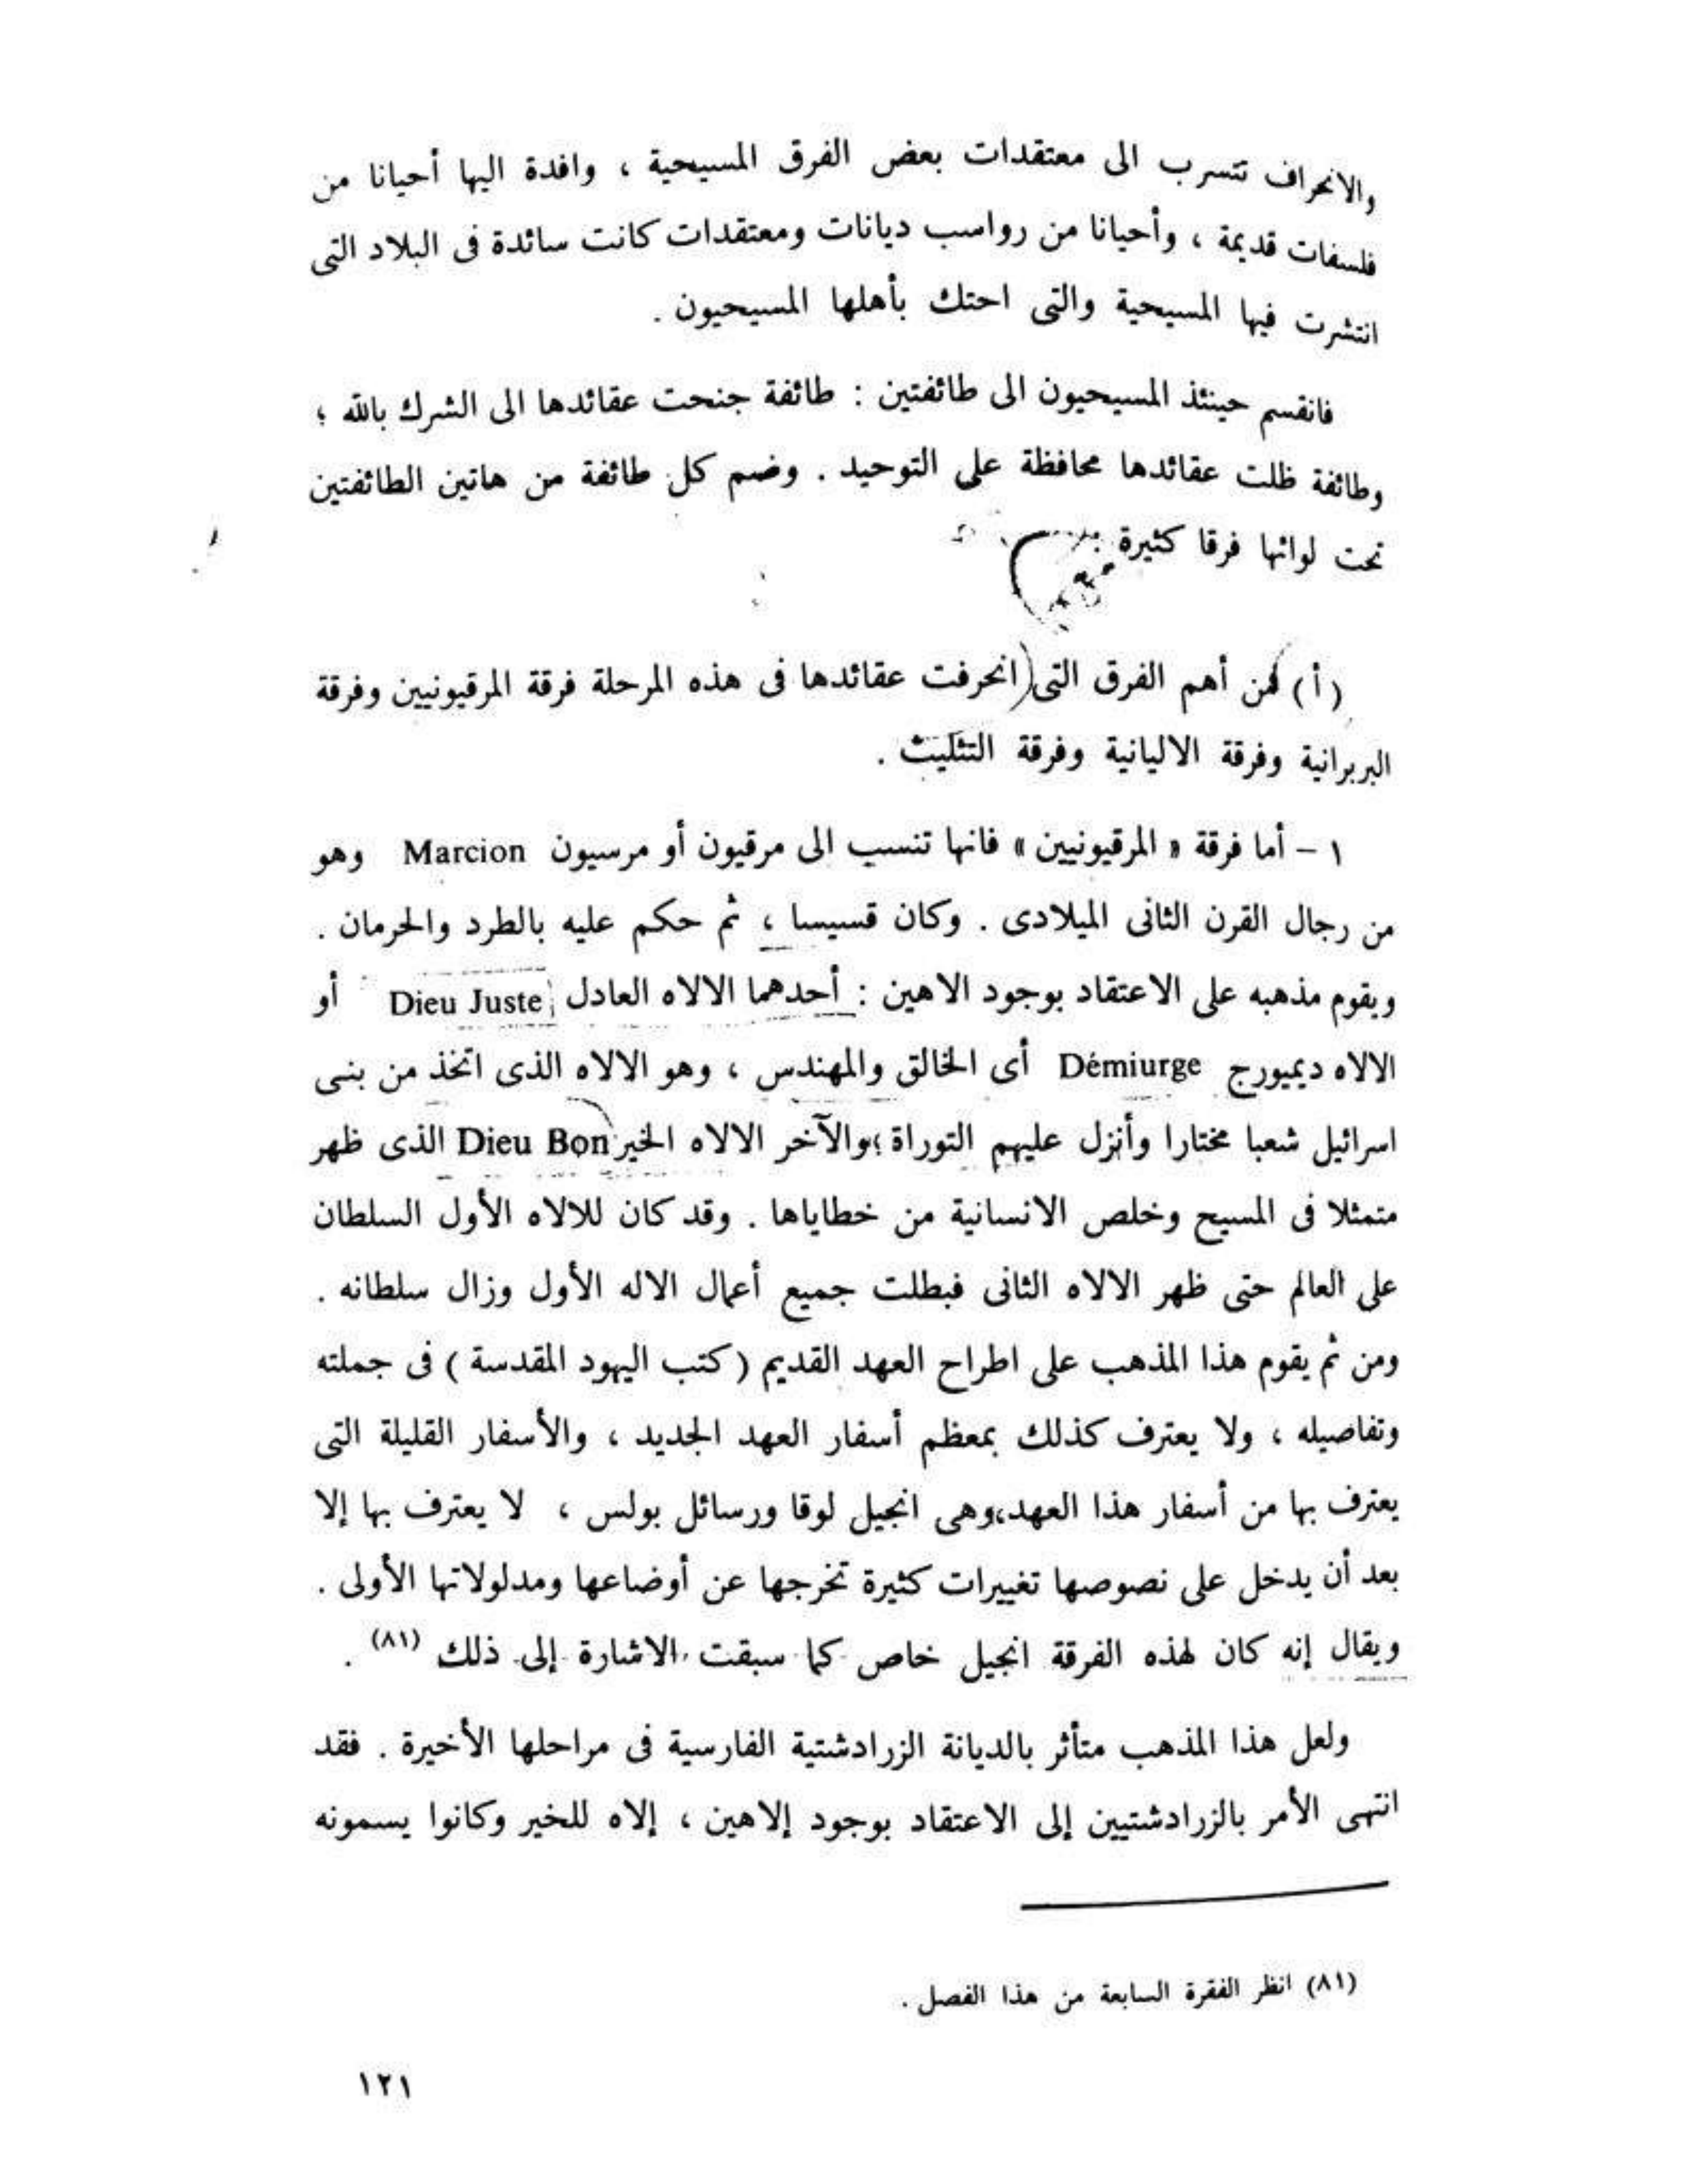 والانحراف تتسرب الى معتقدات بعض الفرق المسيحية ، وافدة اليها أحيانا من
فلسفات قديمة ، وأحيانا من رواسب ديانات ومعتقدات كانت سائدة فى البلاد التى
انتشرت فيها المسيحية والتى احتك بأهلها المسيحيون .
فانقسم حينئذ المسيحيون الى طائفتين : طائفة جنحت عقائدها الى الشرك بالله ؛
وطائفة ظلت عقائدها محافظة على التوحيد . وضم كل طائفة من هاتين الطائفتين
تحت لوائها فرقا كثيرة :
( أ ) فمن أهم الفرق التى انحرفت عقائدها فى هذه المرحلة فرقة المرقيونيين وفرقة
البربرانية وفرقة الاليانية وفرقة التثليث .
١ – أما فرقة « المرقيونيين » فانها تنسب الى مرقيون أو مرسيون Marcion وهو
من رجال القرن الثانى الميلادى . وكان قسيسا ، ثم حكم عليه بالطرد والحرمان .
ويقوم مذهبه على الاعتقاد بوجود الاهين : أحدهما الالاه العادل Dieu Juste أو
الالاه ديميورج Démiurge أى الخالق والمهندس ، وهو الالاه الذى اتخذ من بنى
اسرائيل شعبا مختارا وأنزل عليهم التوراة ؛ والآخر الالاه الخير Dieu Bon الذى ظهر
متمثلا فى المسيح وخلص الانسانية من خطاياها . وقد كان للالاه الأول السلطان
على العالم حتى ظهر الالاه الثانى فبطلت جميع أعمال الاله الأول وزال سلطانه .
ومن ثم يقوم هذا المذهب على اطراح العهد القديم ( كتب اليهود المقدسة ) فى جملته
وتفاصيله ، ولا يعترف كذلك بمعظم أسفار العهد الجديد ، والأسفار القليلة التى
يعترف بها من أسفار هذا العهد، وهى انجيل لوقا ورسائل بولس ، لا يعترف بها إلا
بعد أن يدخل على نصوصها تغييرات كثيرة تخرجها عن أوضاعها ومدلولاتها الأولى .
ويقال إنه كان لهذه الفرقة انجيل خاص كما سبقت الاشارة إلى ذلك (٨١) .
ولعل هذا المذهب متأثر بالديانة الزرادشتية الفارسية فى مراحلها الأخيرة . فقد
انتهى الأمر بالزرادشتيين إلى الاعتقاد بوجود إلاهين ، إلاه للخير وكانوا يسمونه
(٨١) انظر الفقرة السابعة من هذا الفصل .
١٢١